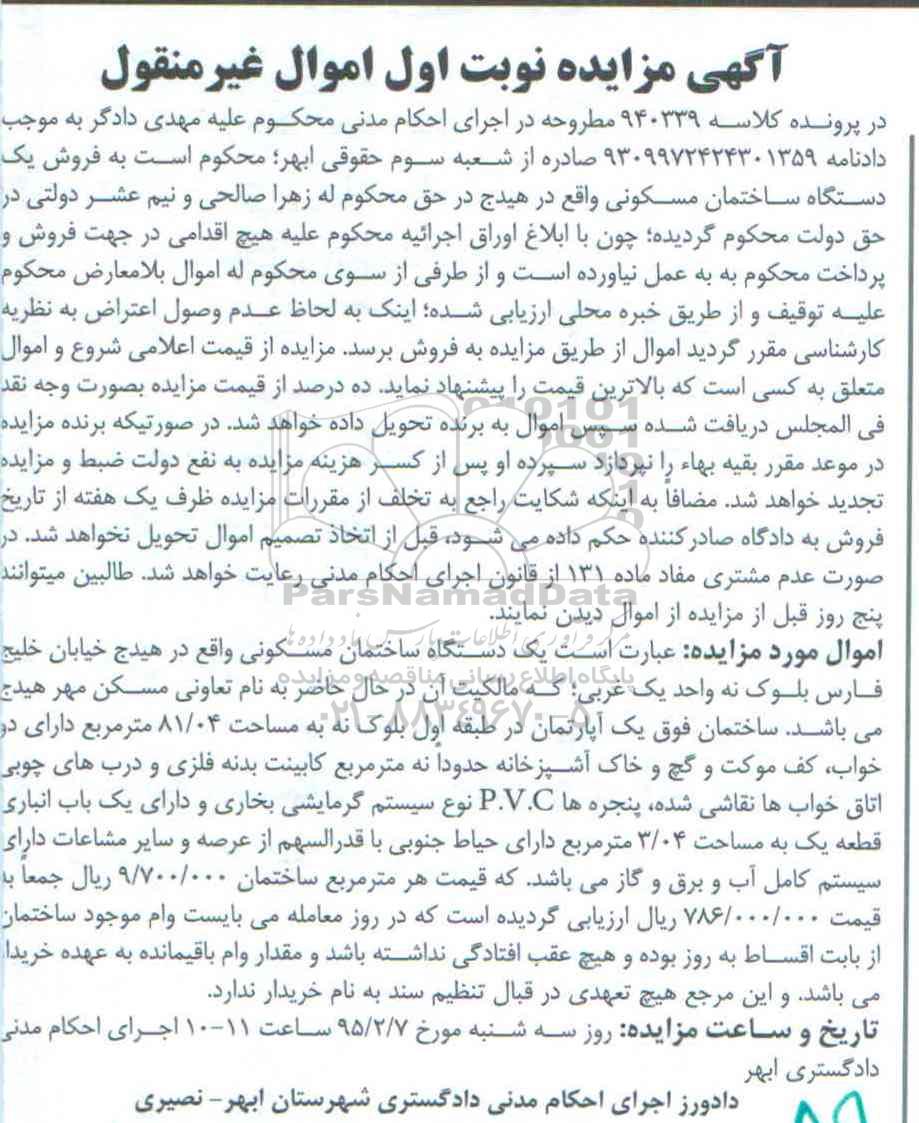 آگهی مزایده نوبت اول اموال غیرمنقول
در پرونده کلاسه ۹۴۰۳۳۹ مطروحه در اجرای احکام مدنی محکوم علیه مهدی دادگر به موجب
دادنامه ۹۳۰۹۹۷۲۴۲۴۳۰۱۳۵۹ صادره از شعبه سوم حقوقی ابهر؛ محکوم است به فروش یک
دستگاه ساختمان مسکونی واقع در هیدج در حق محکوم له زهرا صالحی و نیم عشر دولتی در
حق دولت محکوم گردیده؛ چون با ابلاغ اوراق اجرائیه محکوم علیه هیچ اقدامی در جهت فروش و
پرداخت محکوم به به عمل نیاورده است و از طرفی از سوی محکوم له اموال بلامعارض محکوم
علیه توقیف و از طریق خبره محلی ارزیابی شده؛ اینک به لحاظ عدم وصول اعتراض به نظریه
کارشناسی مقرر گردید اموال از طریق مزایده به فروش برسد. مزایده از قیمت اعلامی شروع و اموال
متعلق به کسی است که بالاترین قیمت را پیشنهاد نماید. ده درصد از قیمت مزایده بصورت وجه نقد
فی المجلس دریافت شده سپس اموال به برنده تحویل داده خواهد شد. در صورتیکه برنده مزایده
در موعد مقرر بقیه بهاء را نپردازد سپرده او پس از کسر هزینه مزایده به نفع دولت ضبط و مزایده
تجدید خواهد شد. مضافاً به اینکه شکایت راجع به تخلف از مقررات مزایده ظرف یک هفته از تاریخ
فروش به دادگاه صادرکننده حکم داده می شود، قبل از اتخاذ تصمیم اموال تحویل نخواهد شد. در
صورت عدم مشتری مفاد ماده ۱۳۱ از قانون اجرای احکام مدنی رعایت خواهد شد. طالبین میتوانند
ParsNamadData
پنج روز قبل از مزایده از اموال دیدن نمایند.
مرکز فرآوری اطلاعات پارس نماد داده ها
اموال مورد مزایده: عبارت است یک دستگاه ساختمان مسکونی واقع در هیدج خیابان خلیج
پایگاه اطلاع رسانی مناقصه و مزایده
فارس بلوک نه واحد یک غربی؛ که مالکیت آن در حال حاضر به نام تعاونی مسکن مهر هیدج
۰۲۱-۸۸۳۴۹۶۷۰-۵
می باشد. ساختمان فوق یک آپارتمان در طبقه اول بلوک نه به مساحت ۸۱/۰۴ مترمربع دارای دو
خواب، کف موکت و گچ و خاک آشپزخانه حدوداً نه مترمربع کابینت بدنه فلزی و درب های چوبی
اتاق خواب ها نقاشی شده، پنجره ها P.V.C نوع سیستم گرمایشی بخاری و دارای یک باب انباری
قطعه یک به مساحت ۳/۰۴ مترمربع دارای حیاط جنوبی با قدرالسهم از عرصه و سایر مشاعات دارای
سیستم کامل آب و برق و گاز می باشد. که قیمت هر مترمربع ساختمان ۹/۷۰۰/۰۰۰ ریال جمعاً به
قیمت ۷۸۶/۰۰۰/۰۰۰ ریال ارزیابی گردیده است که در روز معامله می بایست وام موجود ساختمان
از بابت اقساط به روز بوده و هیچ عقب افتادگی نداشته باشد و مقدار وام باقیمانده به عهده خریدار
می باشد. و این مرجع هیچ تعهدی در قبال تنظیم سند به نام خریدار ندارد.
تاریخ و ساعت مزایده: روز سه شنبه مورخ ۹۵/۲/۷ ساعت ۱۱-۱۰ اجرای احکام مدنی
دادگستری ابهر
دادورز اجرای احکام مدنی دادگستری شهرستان ابهر- نصیری